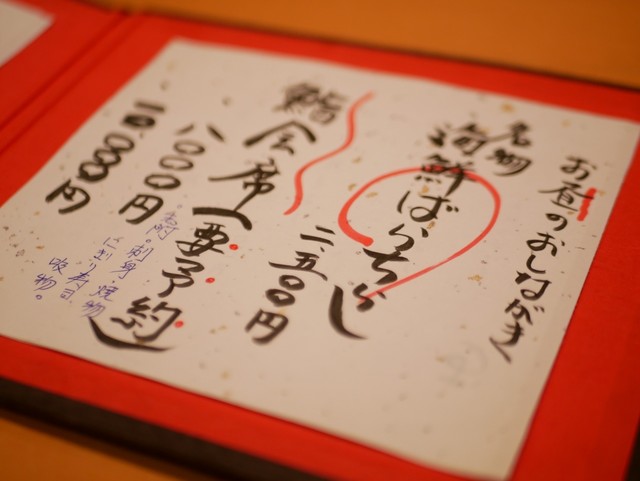 お昼のおしながき
名物
海鮮ばらちらし
二、五〇〇円
鮨会席(要予約)
八〇〇〇円
一〇、〇〇〇円
刺身・焼物
にぎり寿司
吸物。